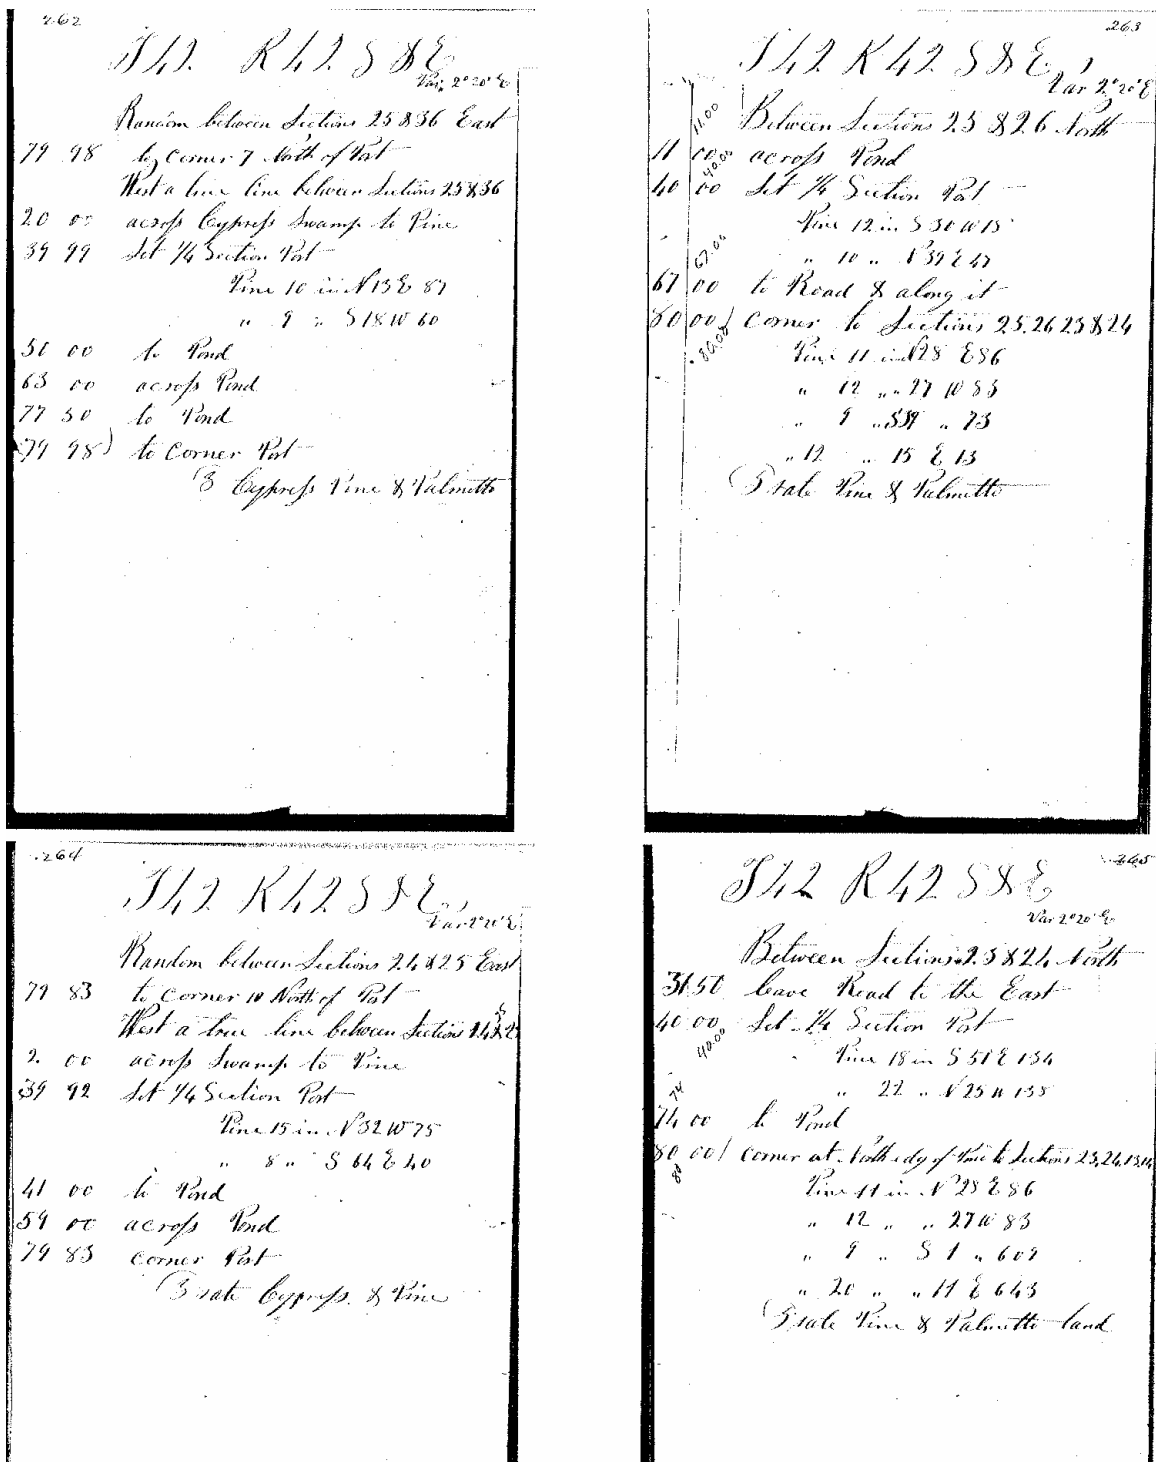 262
T42 R42 S & E
Var. 2° 20' E
Random between Sections 25 & 36 East
79 98 to corner 7 North of Post
West a true line between Sections 25 & 36
20 00 across Cypress Swamp to Pine
39 99 Set 1/4 Section Post
Pine 10 in N 13 E 87
" 9 " S 18 W 60
50 00 to Pond
63 00 across Pond
77 50 to Pond
79 98) to Corner Post
3 Cypress Pine & Palmetto
263
T42 R42 S & E
Var 2° 20' E
11.00
Between Sections 25 & 26 North
11 00 across Pond
40.00
40 00 Set 1/4 Section Post
Pine 12 in S 30 W 15
" 10 " N 39 E 47
67.00
67 00 to Road & along it
80 00) Corner to Sections 25.26 23 & 24
80.00
Pine 11 in N 28 E 86
" 12 " " 27 W 83
" 9 " S 39 " 73
" 12 " 15 E 13
3 rate Pine & Palmetto
264
T42 R42 S & E
Var 2° 20' E
Random between Sections 24 & 25 East
79 83 to Corner 10 North of Post
West a true line between Sections 24 & 25
2. 00 across Swamp to Pine
39 92 Set 1/4 Section Post
Pine 15 in N 32 W 75
" 8 " S 64 E 40
41 00 to Pond
59 00 across Pond
79 83 corner Post
3 rate Cypress & Pine
265
T42 R42 S & E
Var 2° 20' E
Between Sections 23 & 24 North
31 50 leave Road to the East
40 00 Set 1/4 Section Post
40.00
Pine 18 in S 51 E 134
" 22 " N 25 W 138
74
74 00 to Pond
80 00) Corner at North edge of Pine to Sections 23,24,13,14
80
Pine 11 in N 28 E 86
" 12 " " 27 W 83
" 9 " S 1 " 609
" 20 " " 11 E 643
3 rate Pine & Palmetto land